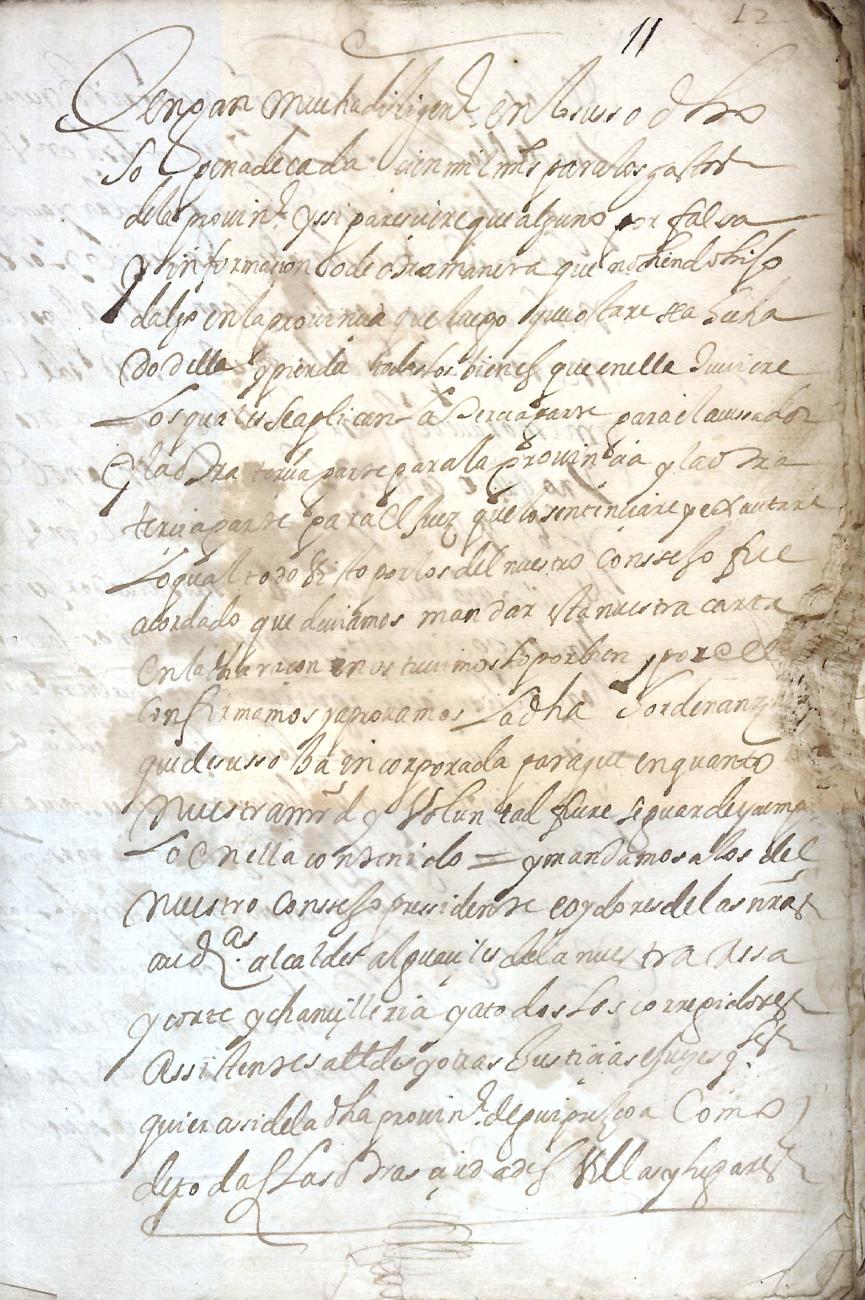 11
12
Tengan mucha diligen.ª en lo suso dho
so pena de cada cien mil mrs para los gastos
de la provin.ª y si paresciere que alguno por falsa
ynformacion o de otra manera que no siendo hijo
dalgo en la provincia que luego que constare sea hecha
do della y pierda todos los bienes que en ella tuviere
Los quales se aplican la tercia parte para el acusador
y la otra tercia parte para la provincia y la otra
tercia parte para el juez que lo sentenciare y executare
Lo qual todo visto por los del nuestro conssejo fue
acordado que deviamos mandar esta nuestra carta
en la dha raçon e nos tuvimoslo por bien y por ella
confirmamos y aprovamos La dha hordenança
que de susso ba incorporada para que en quanto
nuestra mrd y voluntad fuere se guarde y cumpla
Lo en ella contenido = y mandamos a los del
nuestro conssejo pressidente e oydores de las nrãs
aud.as alcaldes alguaçiles de la nuestra cassa
y corte y chançilleria y a todos los corregidores
Assistentes alldes y otras justiçias e juezes qles
quier assi de la dha provin.ª de guipuzcoa Como
de todas Las otras çiudades villas y lugares